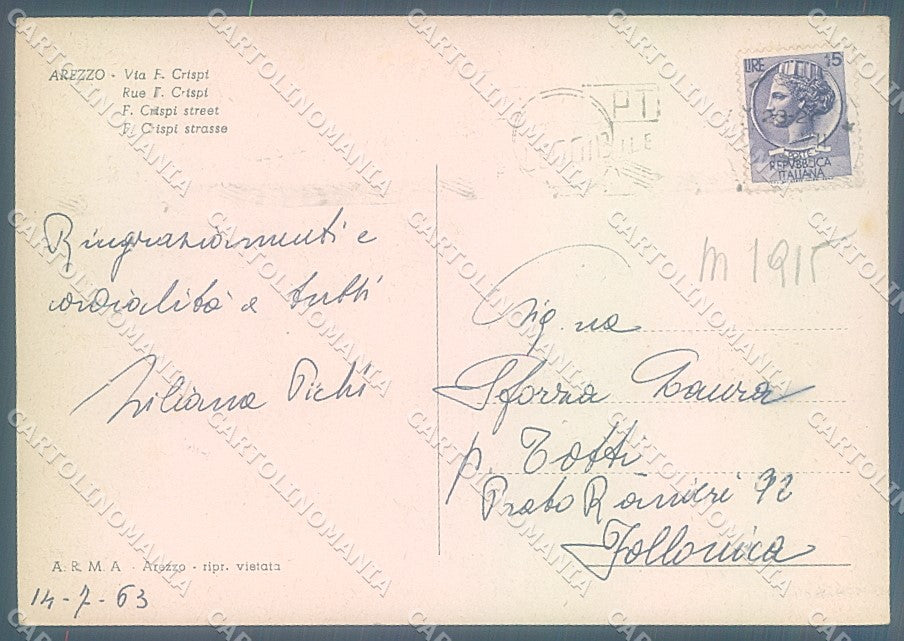 AREZZO - Via F. Crispi
Rue F. Crispi
F. Crispi street
F. Crispi strasse
LIRE 15
REPVBBLICA
ITALIANA
Ringraziamenti e
cordialità a tutti
Liliana Pichi
m 1915
Sig.na
Sforza Laura
p. Totti
Prato Ranieri 92
Follonica
A. R. M. A. - Arezzo - ripr. vietata
14-7-63
CARTOLINOMANIA